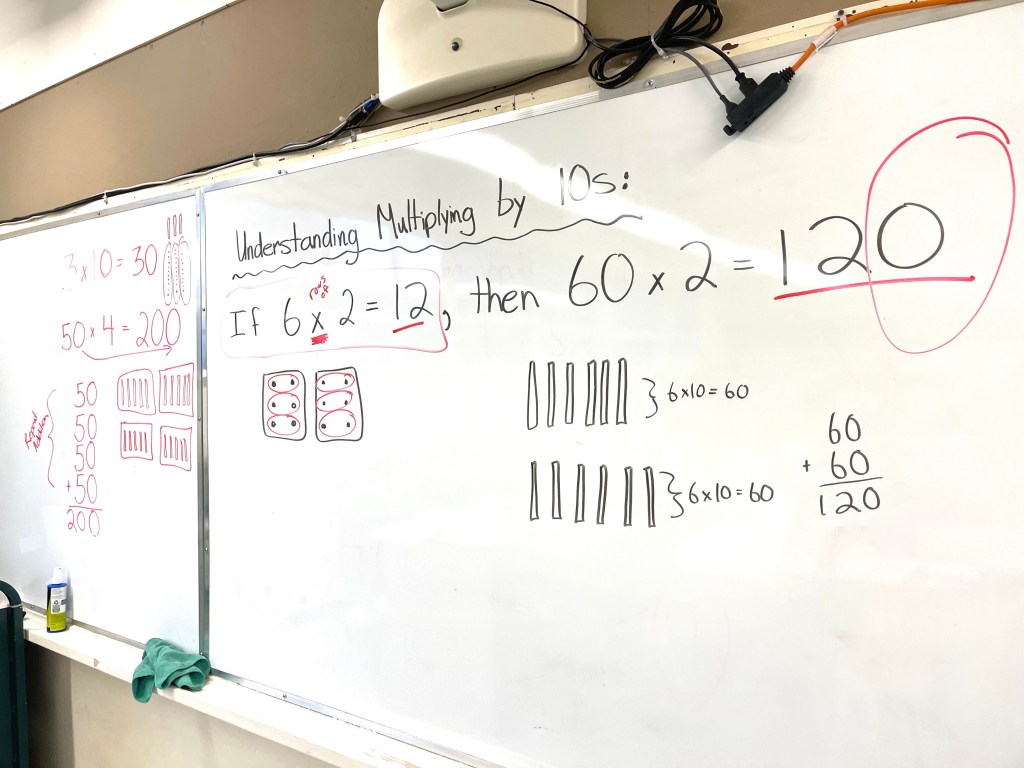 3 x 10 = 30
50 x 4 = 200
Repeated Addition
50
50
50
+ 50
200
Understanding Multiplying by 10s:
rows of
If 6 x 2 = 12, then 60 x 2 = 120
} 6 x 10 = 60
} 6 x 10 = 60
60
+ 60
120